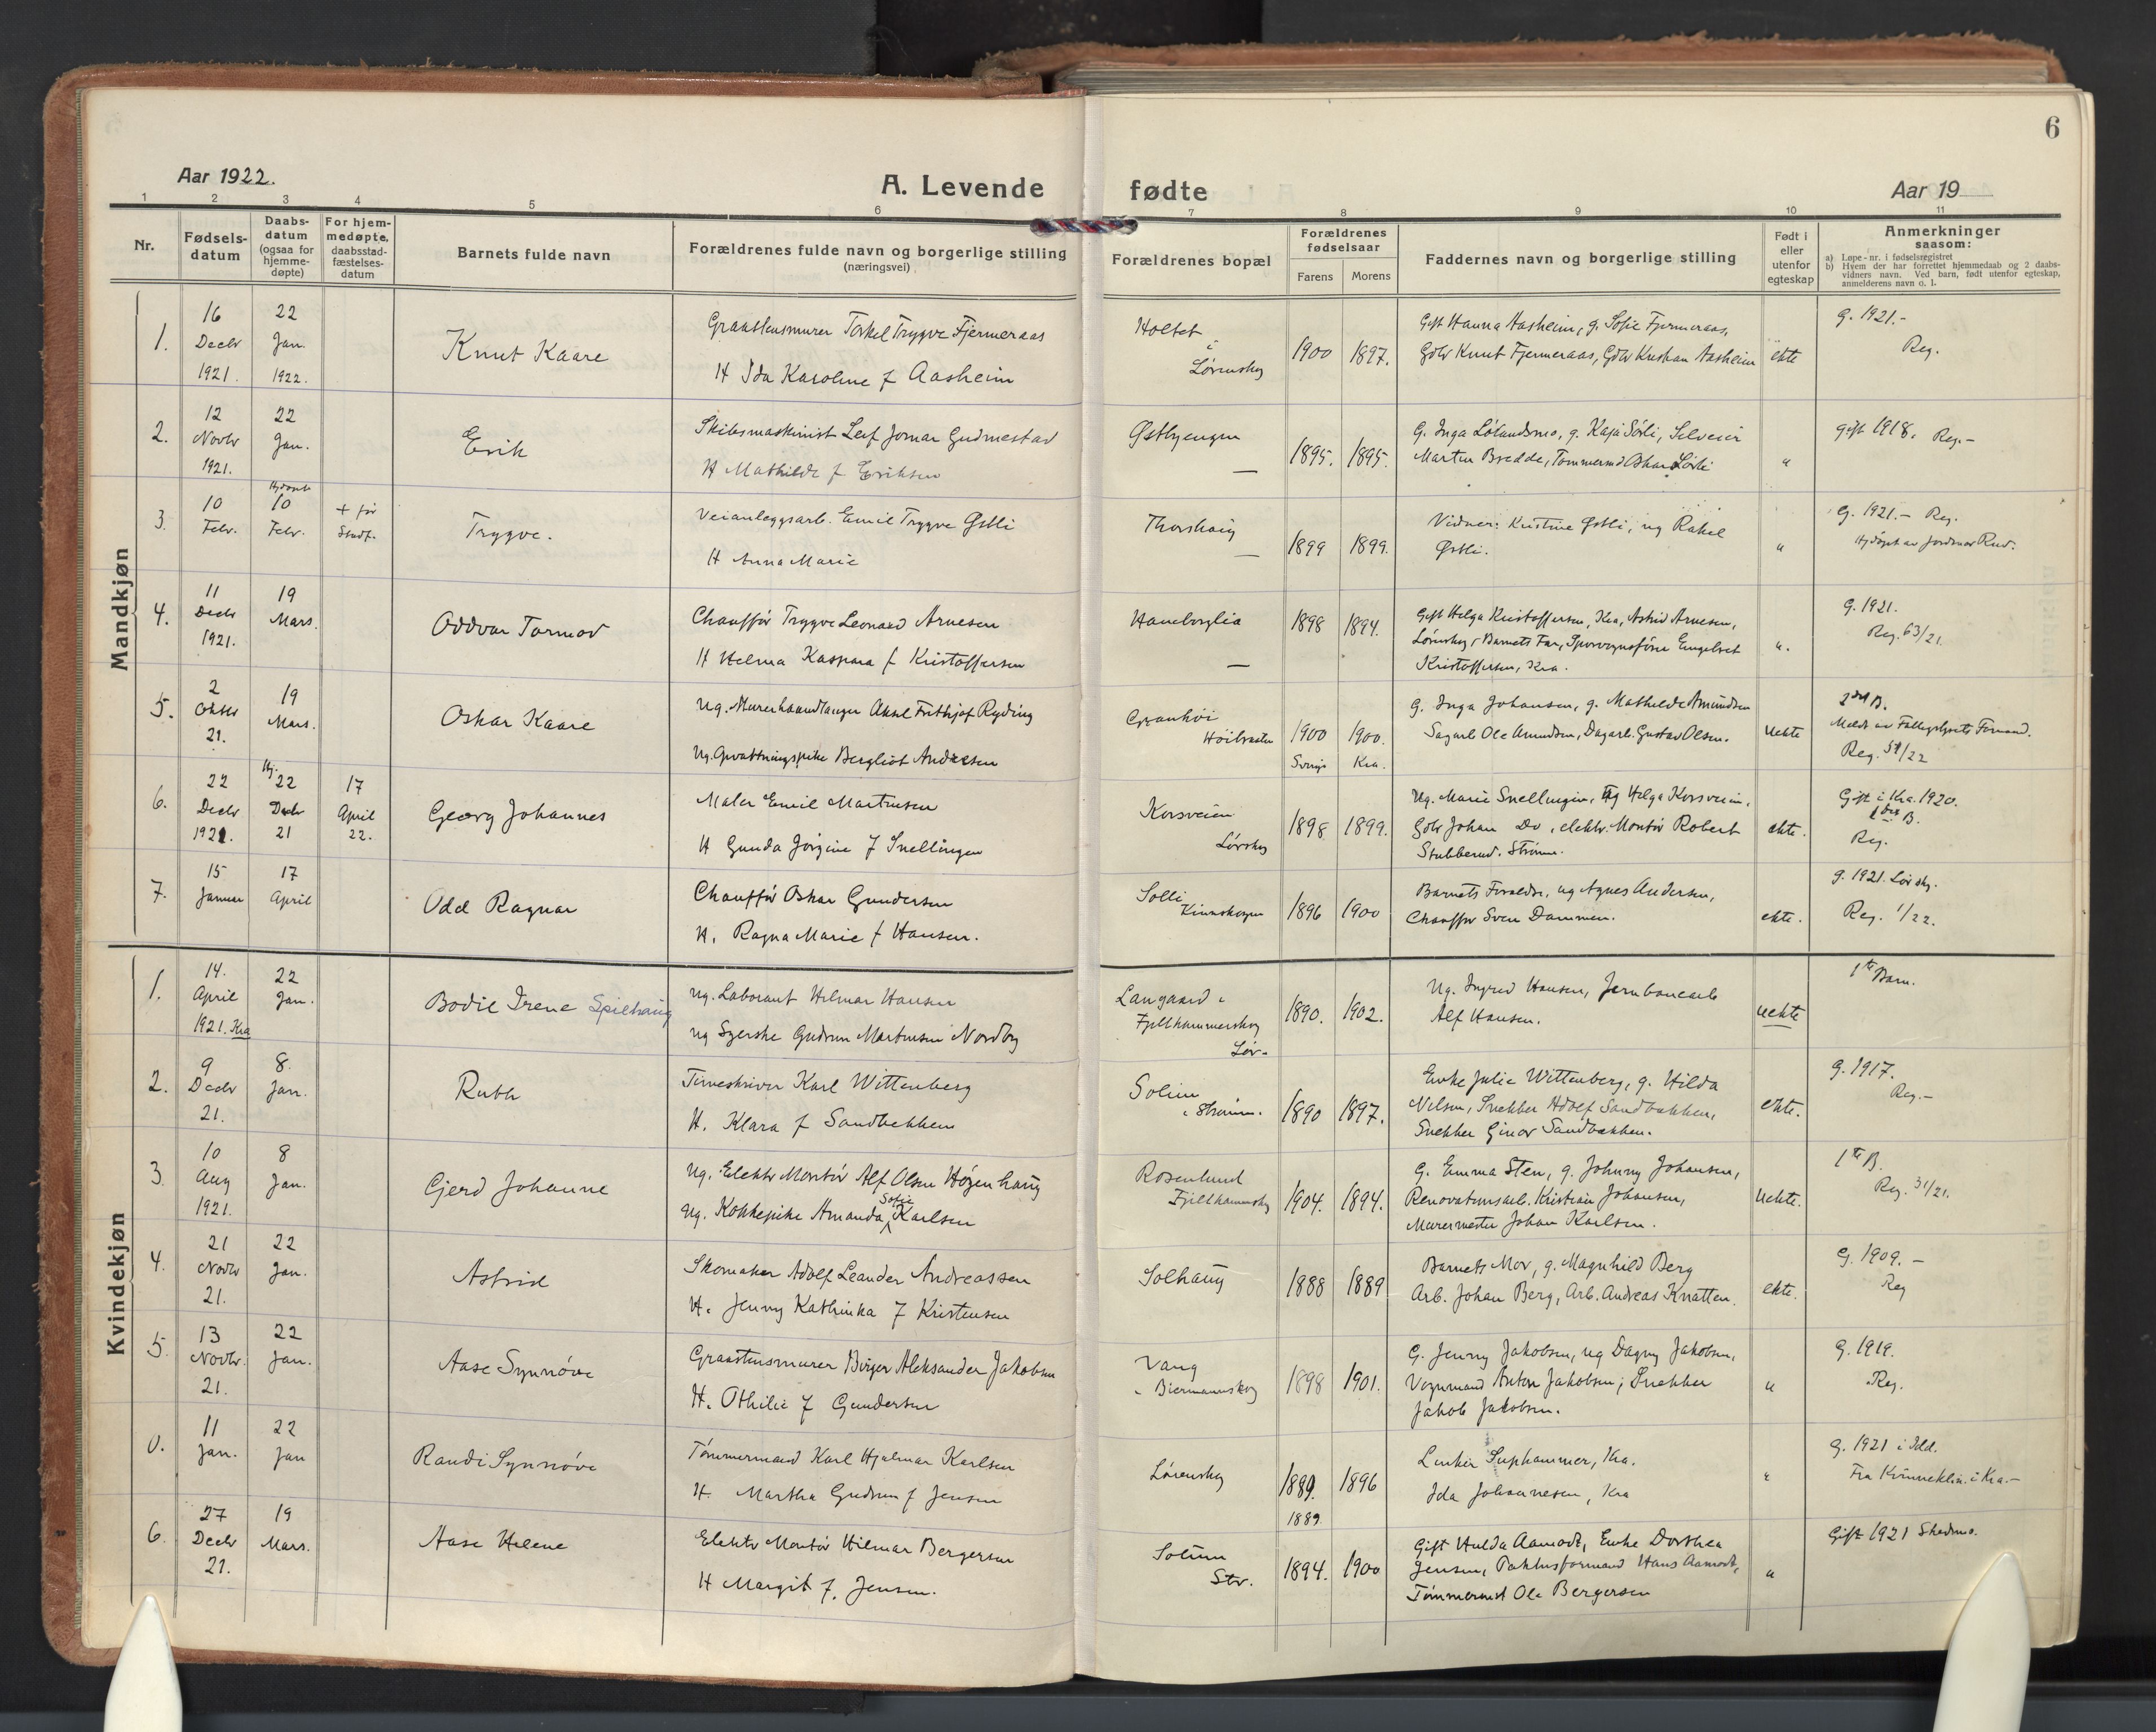 6
Aar 1922.
A. Levende fødte
Aar 19
1 2 3 4 5 6 7 8 9 10 11
Nr.
Fødsels-
datum
Daabs-
datum
(ogsaa for
hjemme-
døpte)
For hjem-
medøpte,
daabsstad-
fæstelses-
datum
Barnets fulde navn
Forældrenes fulde navn og borgerlige stilling
(næringsvei)
Forældrenes bopæl
Forældrenes
fødselsaar
Farens Morens
Faddernes navn og borgerlige stilling
Født i
eller
utenfor
egteskap
Anmerkninger
saasom:
a) Løpe-nr. i fødselsregistret
b) Hvem der har forrettet hjemmedaab og 2 daabs-
vidners navn. Ved barn, født utenfor egteskap,
anmelderens navn o. l.
Mandkjøn
1.
16
Decbr
1921.
22
Jan.
1922.
Knut Kaare
Graastensmurer Torkel Trygve Fjermeraas
H Ida Karoline f Aasheim
Holtet
i
Lørenskog
1900 1897.
Gift Hanna Aasheim, g. Sofie Fjermeraas,
Gdbr Knut Fjermeraas, Gdbr Kristian Aasheim
ekte
g. 1921.-
Reg.
2.
12
Novbr
1921.
22
Jan.
Erik
Skibsmaskinist Leif Jomar Gudmestad
H Mathilde f Eriksen
Østbyengen
—
1895. 1895.
G. Inga Lølandsmo, g. Kaja Sørli,
Martin Bredde, Tømmermd Oskar Sørli
"
gift 1918. Reg.-
3.
10
Febr.
Hjdøpt
10
Febr.
+ før
Stadf.
Trygve.
Veianleggsarb. Emil Trygve Østli
H Anna Marie
Thorshaug
—
1899 1899.
Vidner: Kristine Østli, ug Rakel
Østli.
"
G. 1921.- Reg.
Hjdøpt av Jordmor Rud.
4.
11
Decbr
1921.
19
Mars.
Oddvar Tormod
Chauffør Trygve Leonard Arnesen
H Helma Kaspara f Kristoffersen
Haneborglia
—
1898 1894.
Gift Helga Kristoffersen, Kra, Astrid Arnesen,
Lørenskog, Barnets Far, Sporvognsfører Engebret
Kristoffersen, Kra.
".
G. 1921.
Reg. 63/21.
5.
2
Oktbr
21.
19
Mars.
Oskar Kaare
Ug. Murerhaandlanger Aksel Frithjof Ryding
Ug. Opvartningspike Bergliot Andresen
Granhøi
1900 1900.
Sverige Kra.
G. Inga Johansen, g. Mathilde Amundsen
Sagarb Ole Amundsen, Dagarb. Gustav Olsen.
Uekte
2det B.
Meldt av Fattigstyrets Formand.
Reg. 51/22
6.
22
Decbr
1921.
Hj.
22
Decbr
21
17
April
22.
Georg Johannes
Maler Emil Martinsen
H Gunda Jørgine f Snellingen
Korsveien
Lørskog
1898. 1899.
Ug. Marie Snellingen, Ug Helga Korsveien,
Gdbr Johan Do, elektr. Montør Robert
Stubberud. Strømm.
ekte.
Gift i Kra. 1920.
B.
Reg.
7.
15
Januar
17
April
Odd Ragnar
Chauffør Oskar Gundersen
H. Ragna Marie f Hansen.
Solli
Kinnskogen
1896 1900
Barnets Foreldre, ug Agnes Andersen,
Chauffør Sven Dammen.
ekte.
g. 1921. Lørskg.
Reg. 1/22.
Kvindekjøn
1.
14.
April
1921. Kra
22
Jan.
Bodil Irene Spilhaug
Ug. Laborant Hilmar Hansen
ug Syerske Gudrun Martinsen Nordby
Langaard i
Fjellhammerskog
Lør-
1890. 1902.
Ug. Ingrid Hansen, Jernbanearb
Alf Hansen.
uekte
1ste Barn.
2.
9
Decbr
21.
8.
Jan.
Ruth
Timeskriver Karl Wittenberg
H. Klara f Sandbekken
Solum
i Strømm.
1890 1897.
Enke Julie Wittenberg, g. Hilda
Nilsen, Snekker Adolf Sandbakken,
Snekker Einar Sandbakken.
ekte.
g. 1917.
Reg.-
3.
10
Aug
1921.
8
Jan.
Gjerd Johanne
Ug. Elektr Montør Alf Olsen Høgenhaug
Ug. Kokkepike Amanda Sofie Karlsen
Rosenlund
Fjellhammerskg
1904. 1894.
G. Emma Sten, g. Johnny Johansen,
Renovationsarb. Kristian Johansen,
Murermester Johan Karlsen.
Uekte.
1ste B.
Reg. 31/21.
4.
21
Novbr
21.
22
Jan.
Astrid
Skomaker Adolf Leander Andreassen
H. Jenny Kathinka f Kristensen
Solhaug
1888 1889
Barnets Mor, g. Magnhild Berg
Arb. Johan Berg, Arb. Andreas Knatten.
ekte.
G. 1909.-
Reg
5.
13
Novbr.
21.
22
Jan.
Aase Synnøve
Graastensmurer Birger Aleksander Jakobsen
H. Othilie f Gundersen
Vang
i Biermannskog
1898 1901.
G. Jenny Jakobsen, ug Dagny Jakobsen,
Vognmand Anton Jakobsen, Snekker
Jakob Jakobsen.
"
G. 1919.
Reg.
0.
11
Jan.
22
Jan
Randi Synnøve
Tømmermand Karl Hjalmar Karlsen
H. Martha Gudrun f Jensen
Lørenskg
1889. 1896
1889.
Kra.
Ida Johannesen, Kra
"
G. 1921 i Idd.
Fra Kvinneklin. i Kra.-
6.
27
Decbr
21.
19
Mars.
Aase Helene
Elektr Montør Hilmar Bergersen
H Margit f. Jensen.
Solum
Str.
1894. 1900
Gift Hulda Aamodt, Enke Dorthea
Jensen, Pakhusformand Hans Aamodt,
Tømmermd Ole Bergersen
"
Gift 1921 Skedsmo.